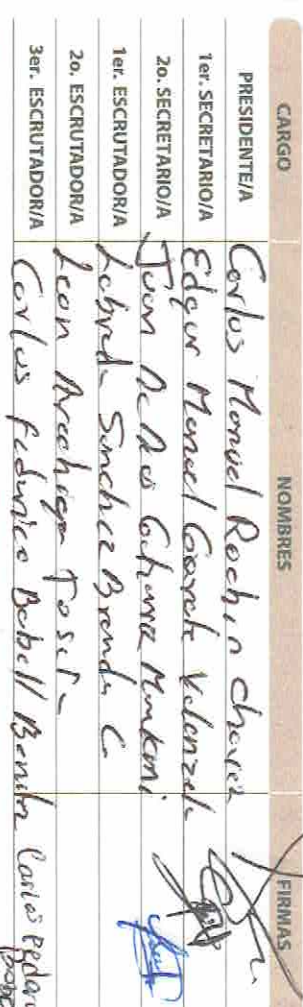 CARGO NOMBRES FIRMAS
PRESIDENTE/A Carlos Manuel Rochin Chavez
1er. SECRETARIO/A Edgar Manuel Garate Valenzuela
2o. SECRETARIO/A Juan De Dios
1er. ESCRUTADOR/A Sanchez Brenda C
2o. ESCRUTADOR/A Leon Arechiga
3er. ESCRUTADOR/A Carlos Federico Benitez Carlos